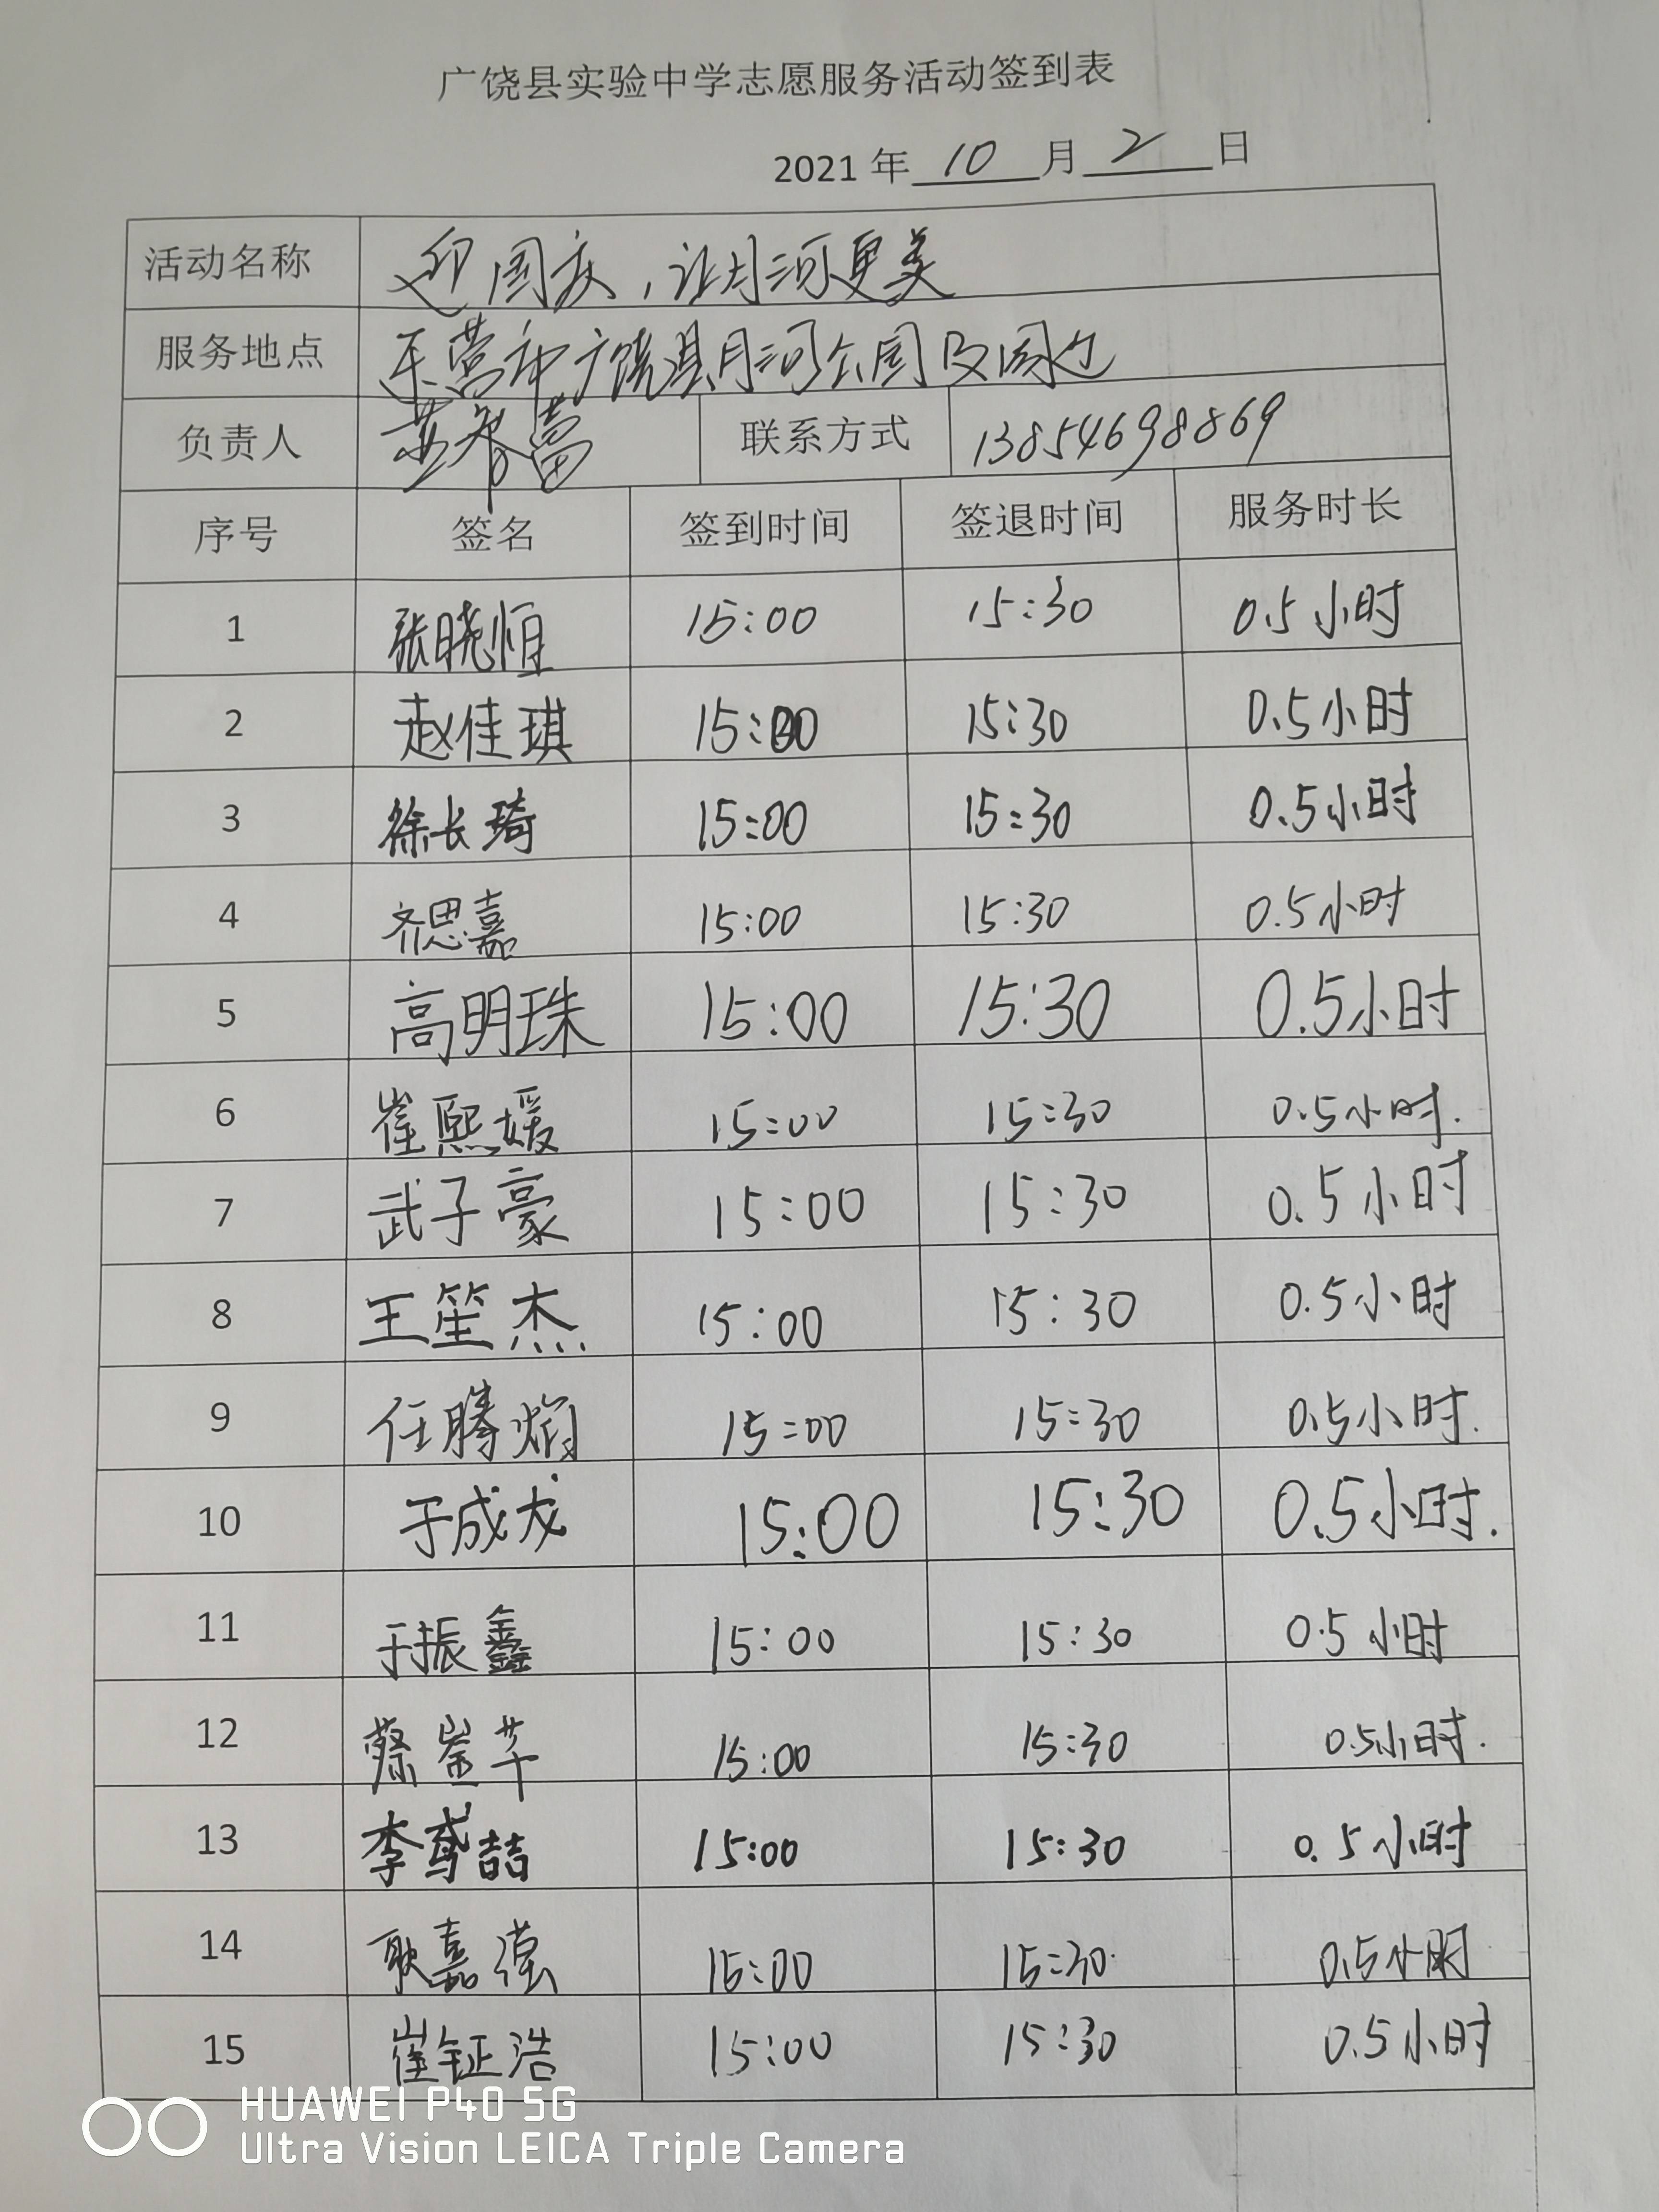 广饶县实验中学志愿服务活动签到表
2021 年 10 月 2 日
活动名称 迎国庆，让月河更美
服务地点 东营市广饶县月河公园及周边
负责人 联系方式 13854698869
序号 签名 签到时间 签退时间 服务时长
1 张晓恒 15:00 15:30 0.5小时
2 赵佳琪 15:00 15:30 0.5小时
3 徐长琦 15:00 15:30 0.5小时
4 齐思嘉 15:00 15:30 0.5小时
5 高明珠 15:00 15:30 0.5小时
6 崔熙媛 15:00 15:30 0.5小时.
7 武子豪 15:00 15:30 0.5小时
8 王笙杰 15:00 15:30 0.5小时
9 任腾焰 15:00 15:30 0.5小时.
10 于成龙 15:00 15:30 0.5小时.
11 于振鑫 15:00 15:30 0.5小时
12 蔡 15:00 15:30 0.5小时.
13 李鸢喆 15:00 15:30 0.5小时
14 耿嘉强 15:00 15:30 0.5小时
15 崔钲浩 15:00 15:30 0.5小时
HUAWEI P40 5G
Ultra Vision LEICA Triple Camera